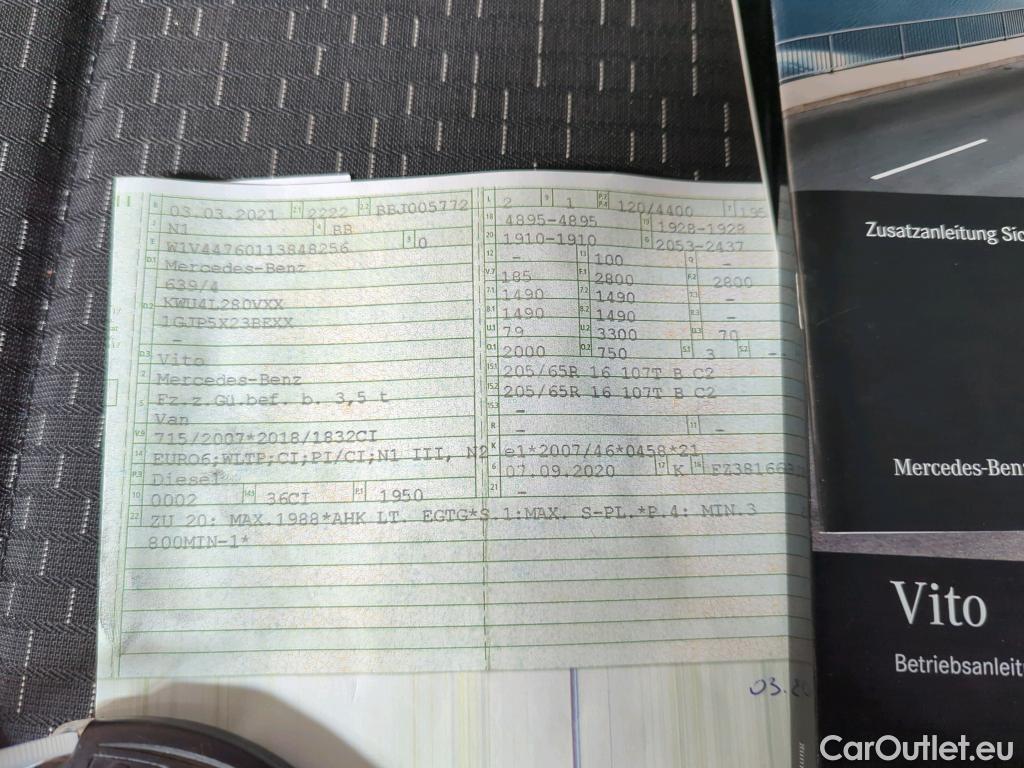 B 03.03.2021 2.1 2222 2.2 BBJ005772
J N1 4 BB
E W1V44760113848256 3 0
D.1 Mercedes-Benz
639/4
D.2 KWU4L280VXX
1GJP5X23BEXX
-
D.3 Vito
2 Mercedes-Benz
5 Fz.z.Gü.bef. b. 3,5 t
Van
V.9 715/2007*2018/1832CI
14 EURO6;WLTP;CI;PI/CI;N1 III, N2
P.3 Diesel
10 0002 14.1 36CI P.1 1950
22 ZU 20: MAX.1988*AHK LT. EGTG*S.1:MAX. S-PL.*P.4: MIN.3
800MIN-1*
L 2 9 1 P.2 P.4 120/4400 T 195
18 4895-4895 19 1928-1928
20 1910-1910 G 2053-2437
12 - 13 100 Q -
V.7 185 F.1 2800 F.2 2800
7.1 1490 7.2 1490 7.3 -
8.1 1490 8.2 1490 8.3 -
U.1 79 U.2 3300 U.3 70
O.1 2000 O.2 750 S.1 3 S.2 -
15.1 205/65R 16 107T B C2
15.2 205/65R 16 107T B C2
15.3 -
R - 11 -
K e1*2007/46*0458*21
6 07.09.2020 17 K 16
21 -
03.20
Zusatzanleitung Sic
Mercedes-Benz
Vito
Betriebsanleit
CarOutlet.eu